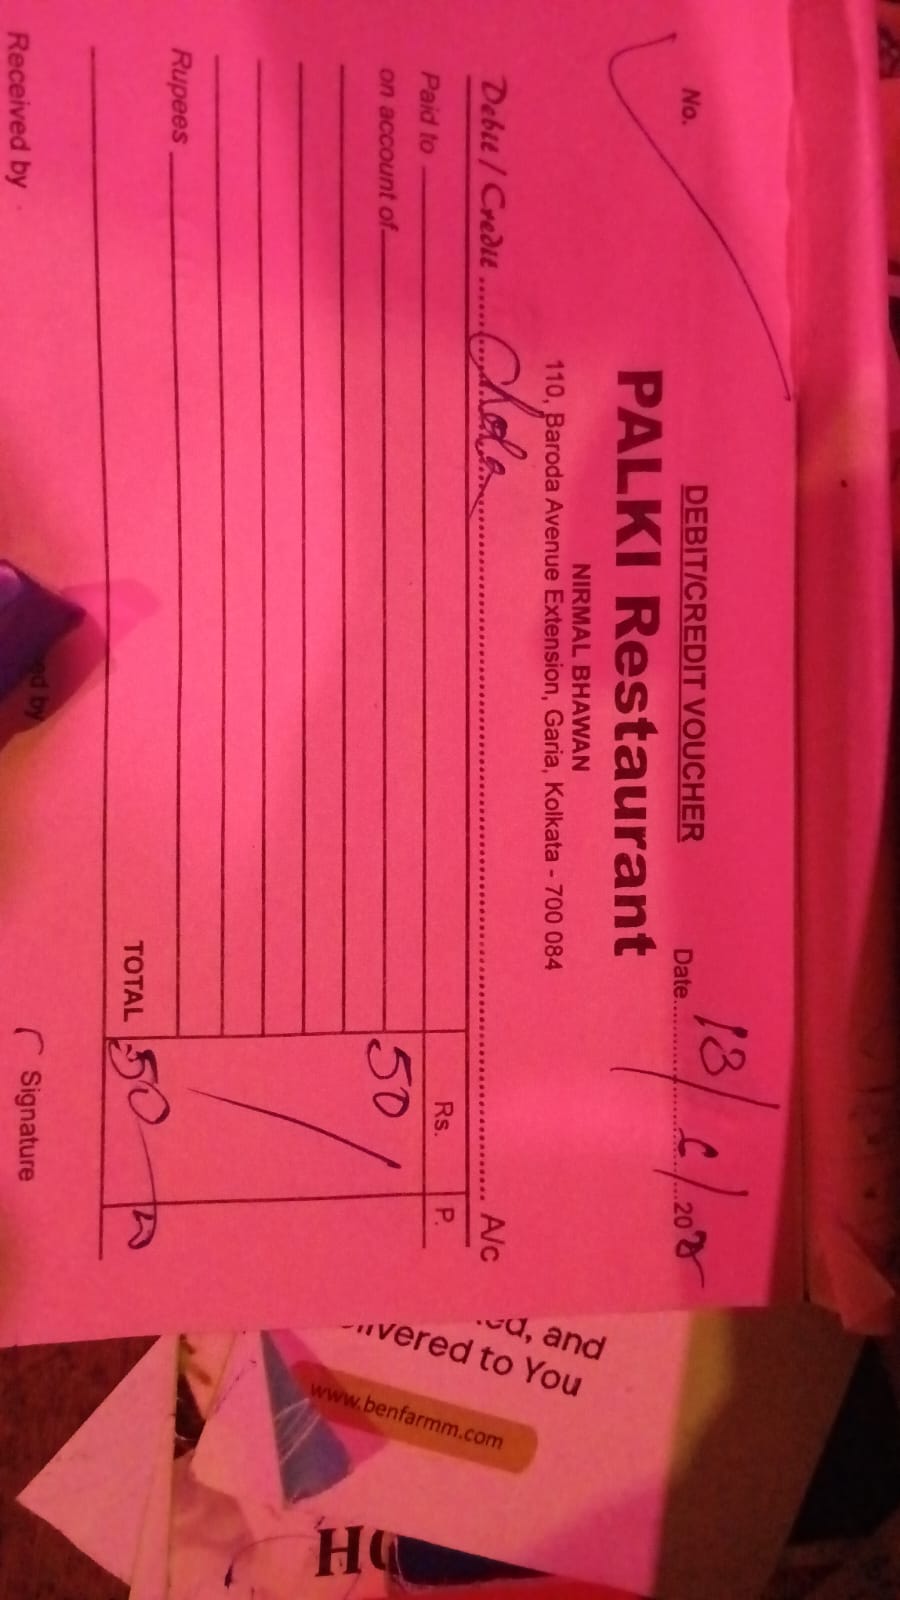 No.
DEBIT/CREDIT VOUCHER
Date............ 13/ /20
PALKI Restaurant
NIRMAL BHAWAN
110, Baroda Avenue Extension, Garia, Kolkata - 700 084
Debit / Credit ............ A/c
Paid to
Rs. P.
on account of 50
Rupees
TOTAL 50
Received by
ed by
Signature
ed, and
livered to You
www.benfarmm.com